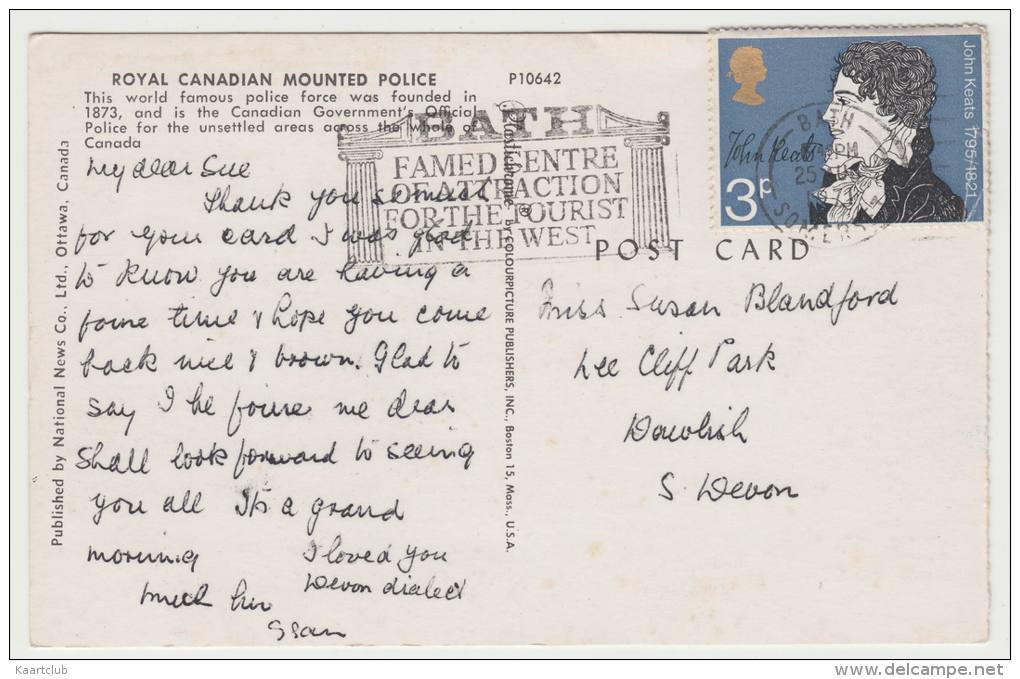 ROYAL CANADIAN MOUNTED POLICE
This world famous police force was founded in
1873, and is the Canadian Government's Official
Police for the unsettled areas across the whole of
Canada
P10642
My dear Sue
Thank you so much
for your card I was glad
to know you are having a
foine time & hope you come
back nice & brown. Glad to
say I be foine me dear
Shall look forward to seeing
you all Its a grand
morning
I loved you
Devon dialect
much luv
Published by National News Co., Ltd., Ottawa, Canada
Plastichrome ® by COLOURPICTURE PUBLISHERS, INC., Boston 15, Mass., U.S.A.
BATH
FAMED CENTRE
OF ATTRACTION
FOR THE TOURIST
IN THE WEST
POST CARD
John Keats 1795/1821
John Keats
3p
BATH
PM
25
1971
SOMERSET
Miss Susan Blandford
Lee Cliff Park
Dawlish
S. Devon
Kaartclub
www.delcampe.net